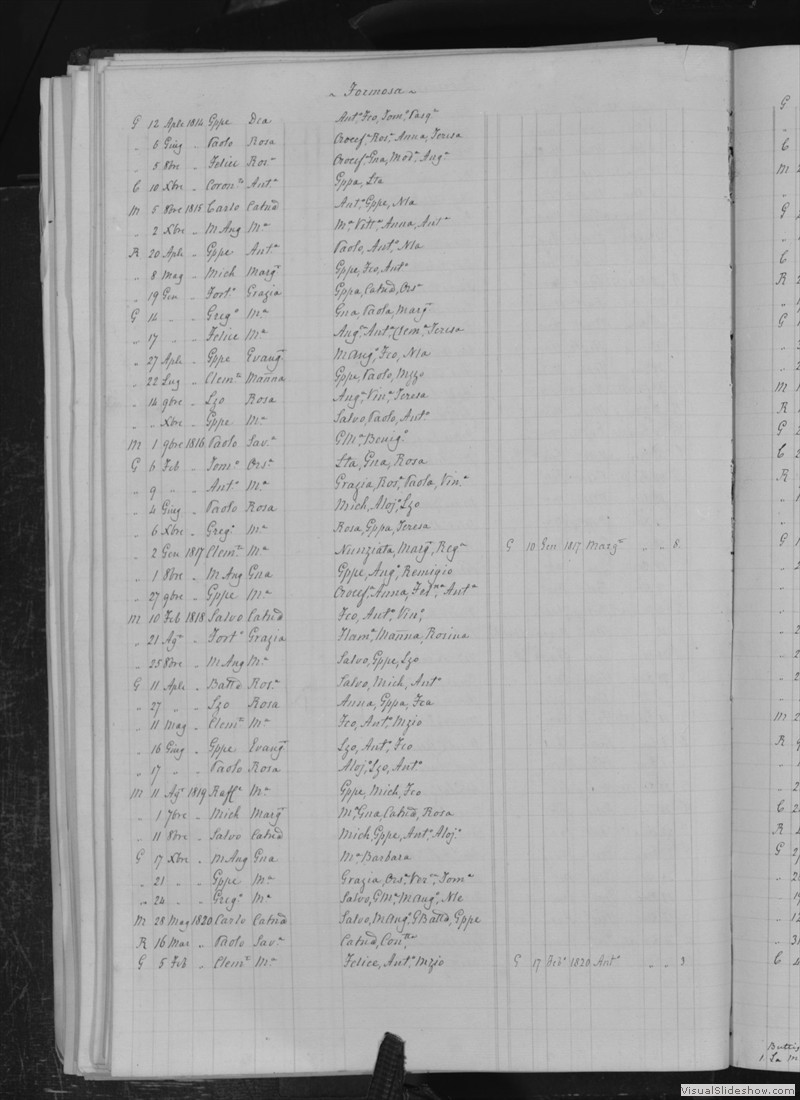 ~ Formosa ~
G 12 Aple 1814 Gppe Dea Antᵒ, Fco, Tomᵒ, Pasqᵉ
„ 6 Giug „ Paolo Rosa Crocefᵃ, Rosᵃ, Anna, Teresa
„ 5 8bre „ Felice Rosᵃ Crocefᵃ, Gna, Modᵃ, Angᵃ
C 10 Xbre „ Coronᵗᵒ Antᵃ Gppa, Lta
M 5 8bre 1815 Carlo Catnᵃ Antᵒ, Gppe, Nla
„ 2 Xbre „ M Ang Mᵃ Mᵃ, Vittᵃ, Anna, Antᵃ
R 20 Aple „ Gppe Antᵃ Paolo, Antᵒ, Nla
„ 8 Mag „ Mich Margᵗᵃ Gppe, Fco, Antᵒ
„ 19 Gen „ Fortᵒ Grazia Gppa, Catnᵃ, Orsᵃ
G 14 „ „ Gregᵒ Mᵃ Gna, Paola, Margᵗᵃ
„ 17 „ „ Felice Mᵃ Angᵃ, Antᵃ, Clemᵃ, Teresa
„ 27 Aple „ Gppe Evangᵗᵃ M Angᵒ, Fco, Nla
„ 22 Lug „ Clemᵗᵉ Manna Gppe, Paolo, Mzzo
„ 14 9bre „ Lzo Rosa Angᵃ, Vinᵃ, Teresa
„ „ Xbre „ Gppe Mᵃ Salvo, Paolo, Antᵒ
M 1 9bre 1816 Paolo Savᵃ G Mᵃ, Benigᵒ
G 6 Feb „ Tomᵒ Orsᵃ Lta, Gna, Rosa
„ 9 „ „ Antᵒ Mᵃ Grazia, Rosᵃ, Paola, Vinᵃ
„ 4 Giug „ Paolo Rosa Mich, Alojᵒ, Lzo
„ 6 Xbre „ Gregᵒ Mᵃ Rosa, Gppa, Teresa
„ 2 Gen 1817 Clemᵗᵉ Mᵃ Nunziata, Margᵗᵃ, Regᵃ G 10 Gen 1817 Margᵗᵃ „ „ 8.
„ 1 8bre „ M Ang Gna Gppe, Angᵒ, Remigio
„ 27 9bre „ Gppe Mᵃ Crocefᵃ, Anna, Felᵗᵃ, Antᵃ
M 10 Feb 1818 Salvo Catnᵃ Fco, Antᵒ, Vinᵒ
„ 21 Agᵒ „ Fortᵒ Grazia Flamᵃ, Manna, Rosina
„ 25 8bre „ M Ang Mᵃ Salvo, Gppe, Lzo
G 11 Aple „ Battᵃ Rosᵃ Salvo, Mich, Antᵒ
„ 27 „ „ Lzo Rosa Anna, Gppa, Fca
„ 11 Mag „ Clemᵗᵉ Mᵃ Fco, Antᵒ, Mzio
„ 16 Giug „ Gppe Evangᵗᵃ Lzo, Antᵒ, Fco
„ 17 „ „ Paolo Rosa Alojᵒ, Lzo, Antᵒ
M 11 Agᵒ 1819 Raffᵉ Mᵃ Gppe, Mich, Fco
„ 1 7bre „ Mich Margᵗᵃ Mᵃ, Gna, Catnᵃ, Rosa
„ 11 8bre „ Salvo Catnᵃ Mich, Gppe, Antᵒ, Alojᵒ
G 17 Xbre „ M Ang Gna Mᵃ Barbara
„ 21 „ „ Gppe Mᵃ Grazia, Orsᵃ, Verᵃ, Tomᵃ
„ 24 „ „ Gregᵒ Mᵃ Salvo, G Mᵃ, M Angᵒ, Nle
M 28 Mag 1820 Carlo Catnᵃ Salvo, M Angᵒ, G Battᵃ, Gppe
R 16 Mar „ Paolo Savᵃ Catnᵃ, Conᵗᵗᵃ
G 5 Feb „ Clemᵗᵉ Mᵃ Felice, Antᵒ, Mzio G 17 Febᵒ 1820 Antᵒ „ „ 3
VisualSlideshow.com